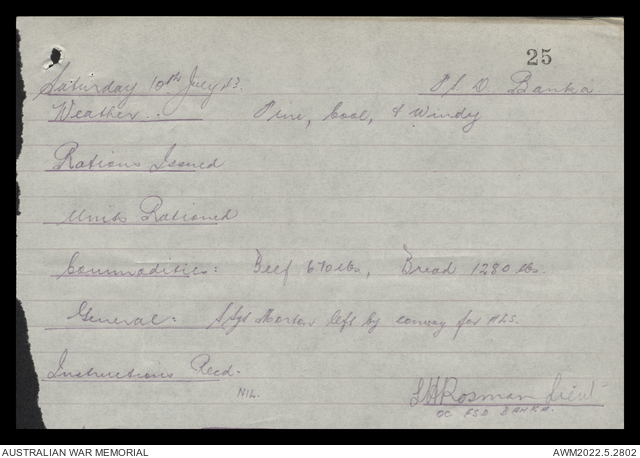 25
Saturday 10th July 43. F S D Banka
Weather.. Fine, Cool, & Windy
Rations Issued
Units Rationed
Commodities: Beef 670 lbs, Bread 1280 lbs.
General: S/Sgt Morton left by convoy for
Instructions Recd.
NIL.
Rosman Lieut
OC FSD BANKA.
AUSTRALIAN WAR MEMORIAL AWM2022.5.2802